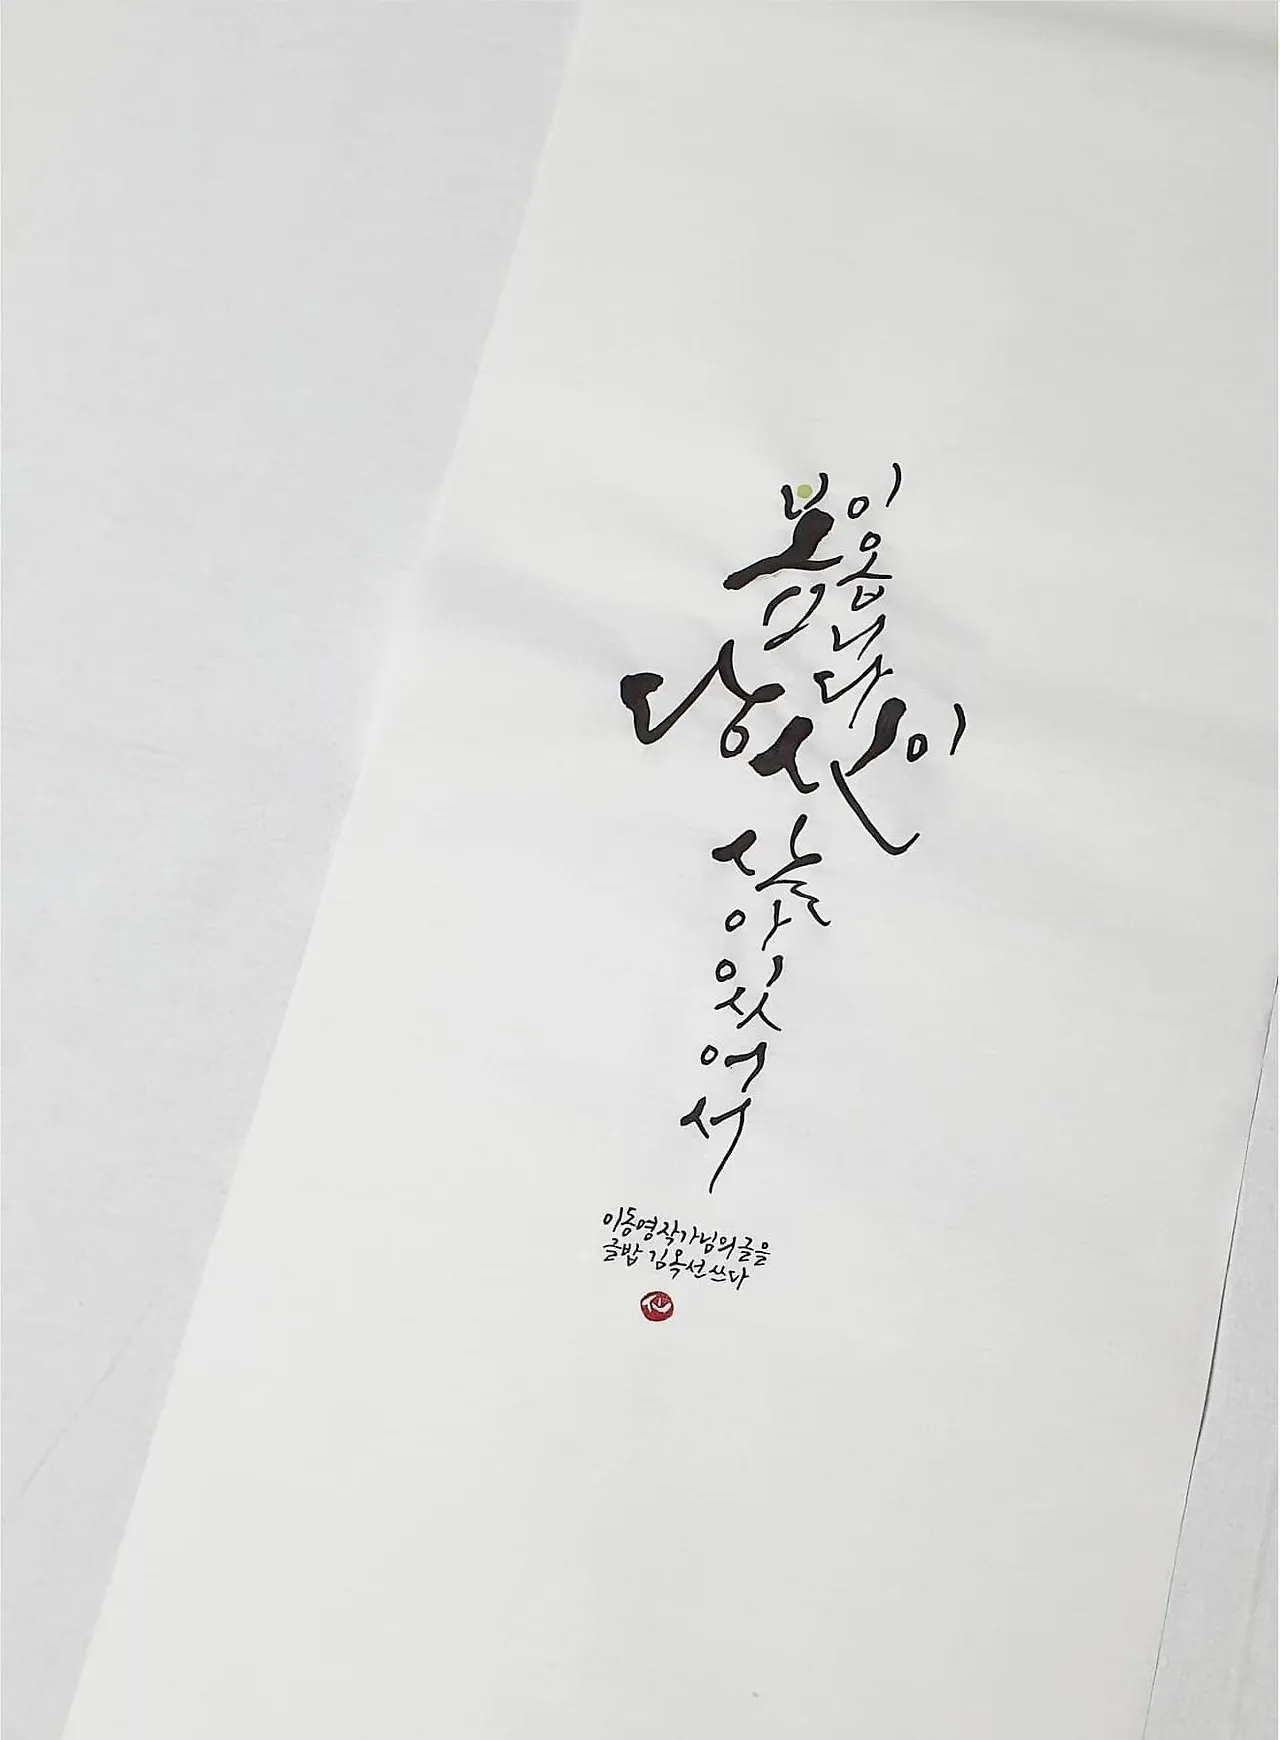 봄이
옵니다
당신이
살아있어서
이동영작가님의글을
글밥 김옥선쓰다